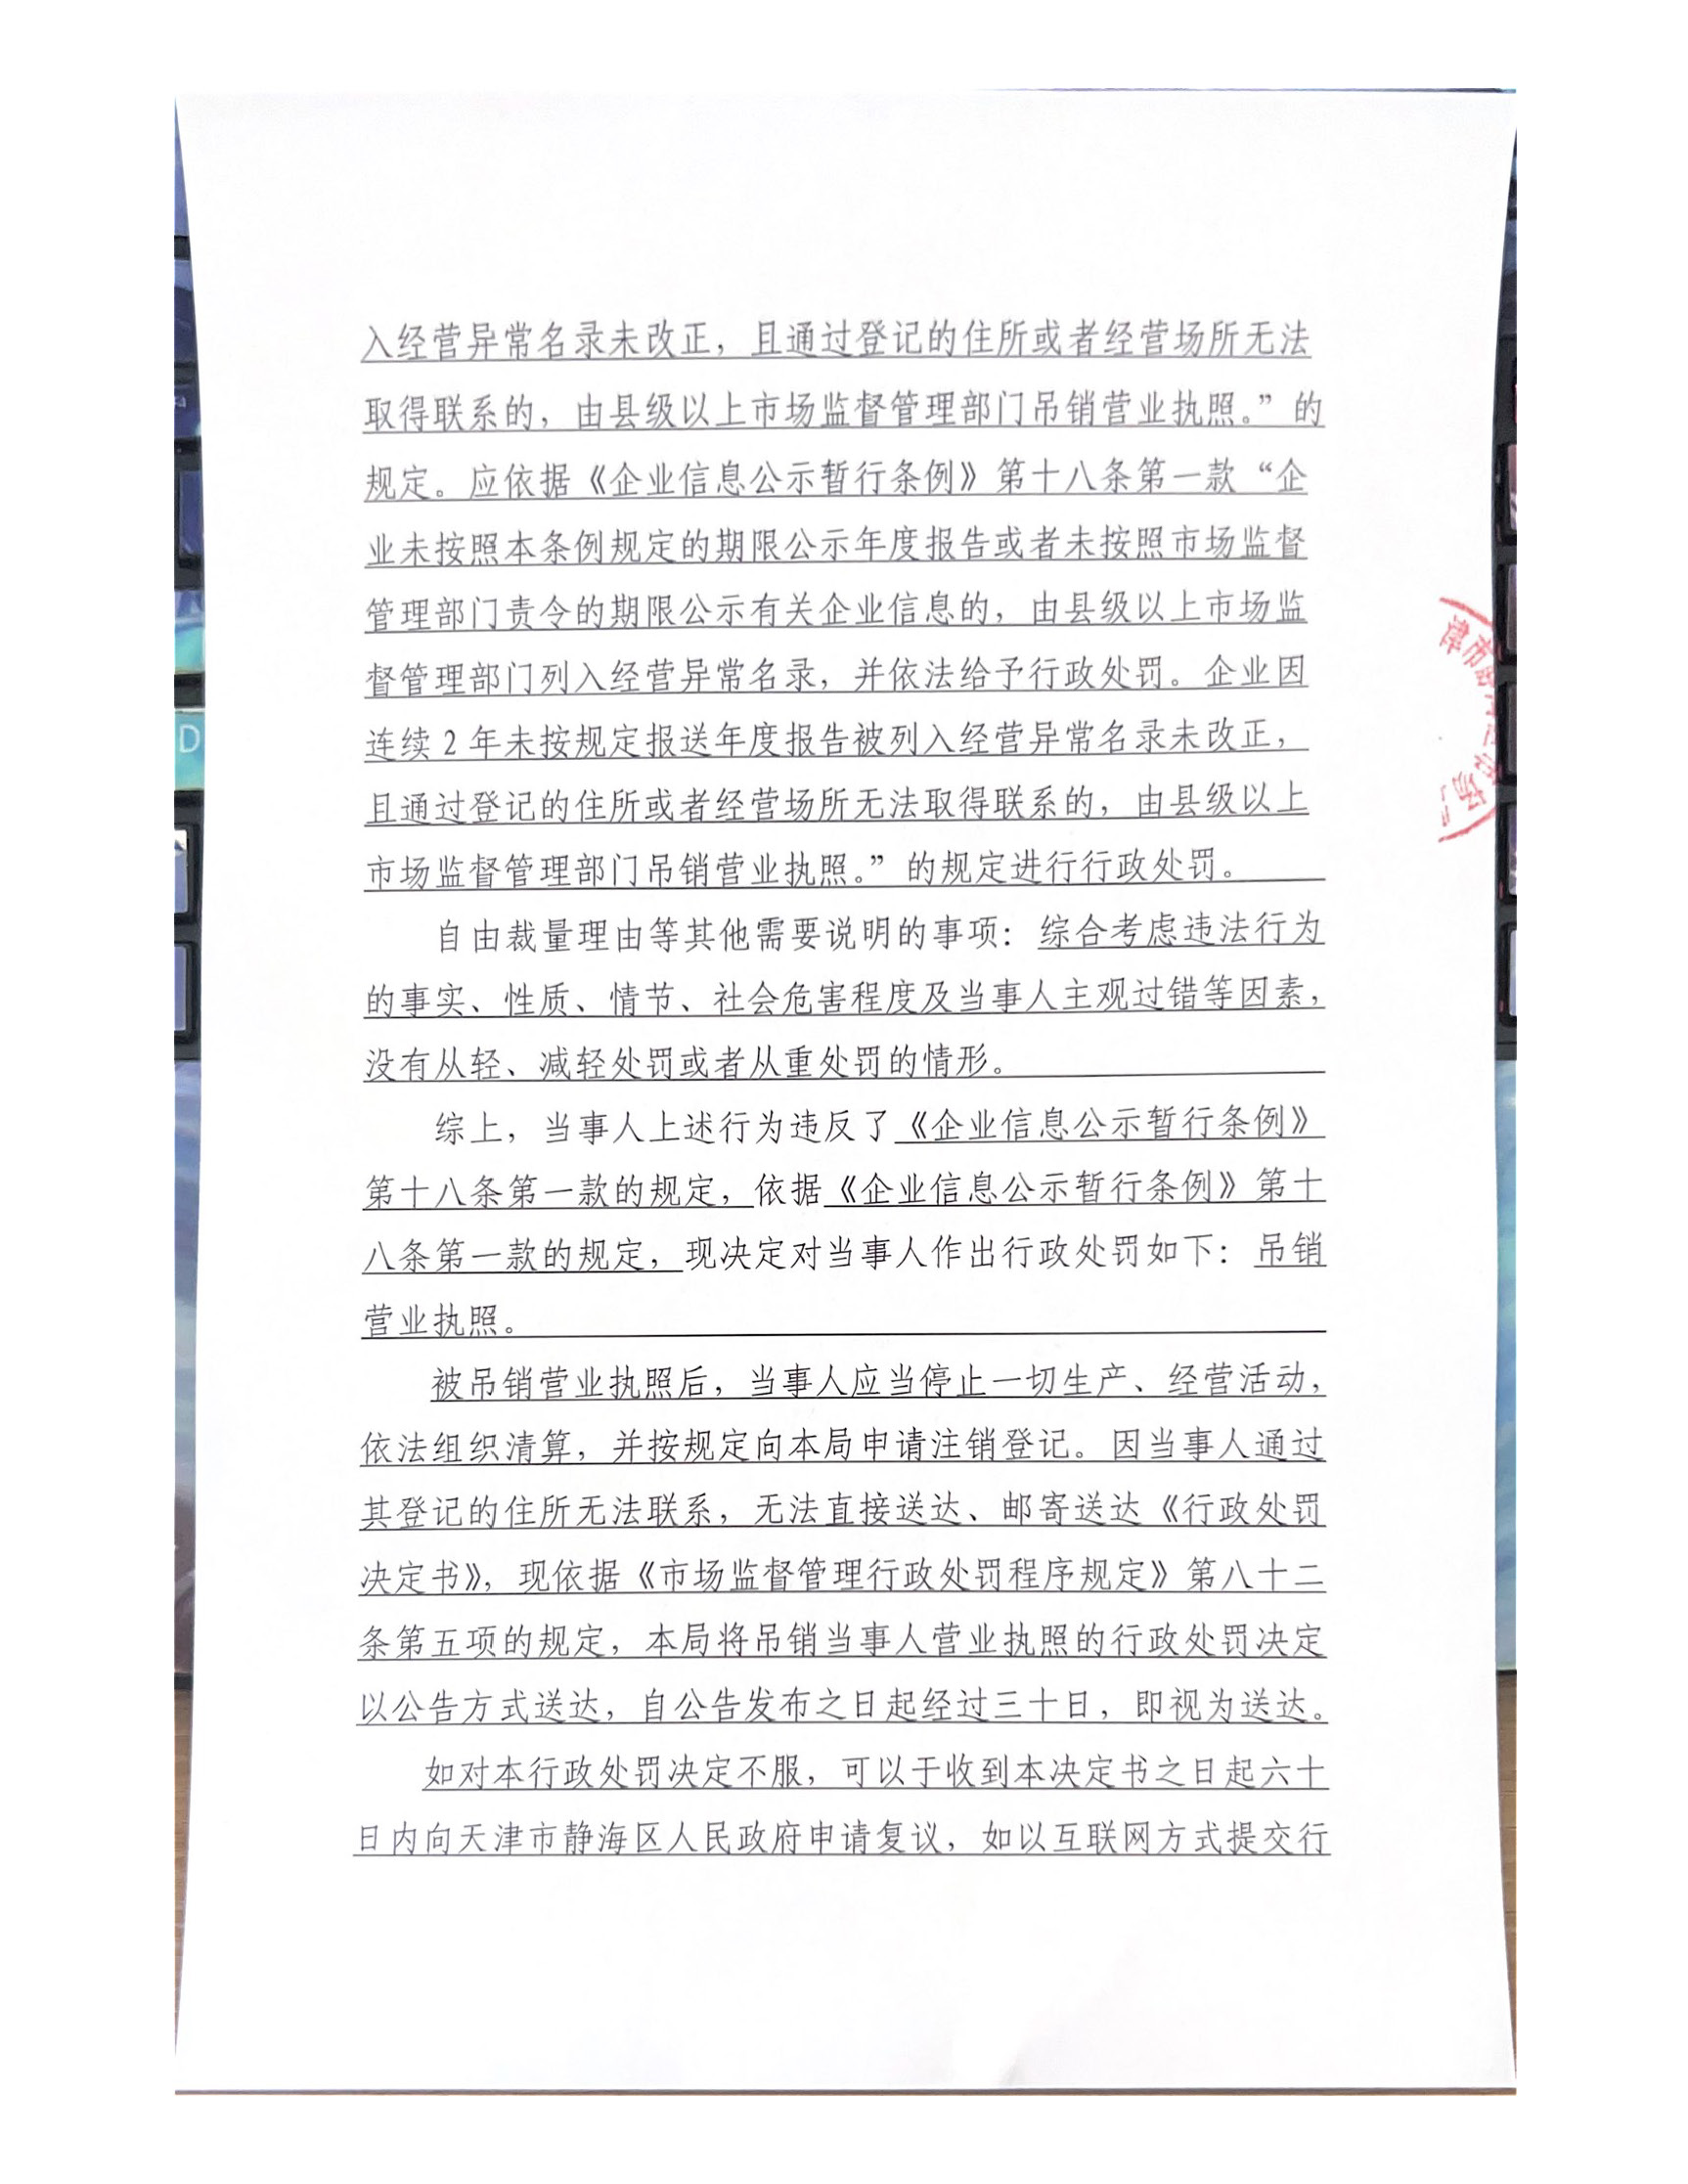 入经营异常名录未改正，且通过登记的住所或者经营场所无法
取得联系的，由县级以上市场监督管理部门吊销营业执照。”的
规定。应依据《企业信息公示暂行条例》第十八条第一款“企
业未按照本条例规定的期限公示年度报告或者未按照市场监督
管理部门责令的期限公示有关企业信息的，由县级以上市场监
督管理部门列入经营异常名录，并依法给予行政处罚。企业因
连续2年未按规定报送年度报告被列入经营异常名录未改正，
且通过登记的住所或者经营场所无法取得联系的，由县级以上
市场监督管理部门吊销营业执照。”的规定进行行政处罚。
自由裁量理由等其他需要说明的事项：综合考虑违法行为
的事实、性质、情节、社会危害程度及当事人主观过错等因素，
没有从轻、减轻处罚或者从重处罚的情形。
综上，当事人上述行为违反了《企业信息公示暂行条例》
第十八条第一款的规定，依据《企业信息公示暂行条例》第十
八条第一款的规定，现决定对当事人作出行政处罚如下：吊销
营业执照。
被吊销营业执照后，当事人应当停止一切生产、经营活动，
依法组织清算，并按规定向本局申请注销登记。因当事人通过
其登记的住所无法联系，无法直接送达、邮寄送达《行政处罚
决定书》，现依据《市场监督管理行政处罚程序规定》第八十二
条第五项的规定，本局将吊销当事人营业执照的行政处罚决定
以公告方式送达，自公告发布之日起经过三十日，即视为送达。
如对本行政处罚决定不服，可以于收到本决定书之日起六十
日内向天津市静海区人民政府申请复议，如以互联网方式提交行
津市
D